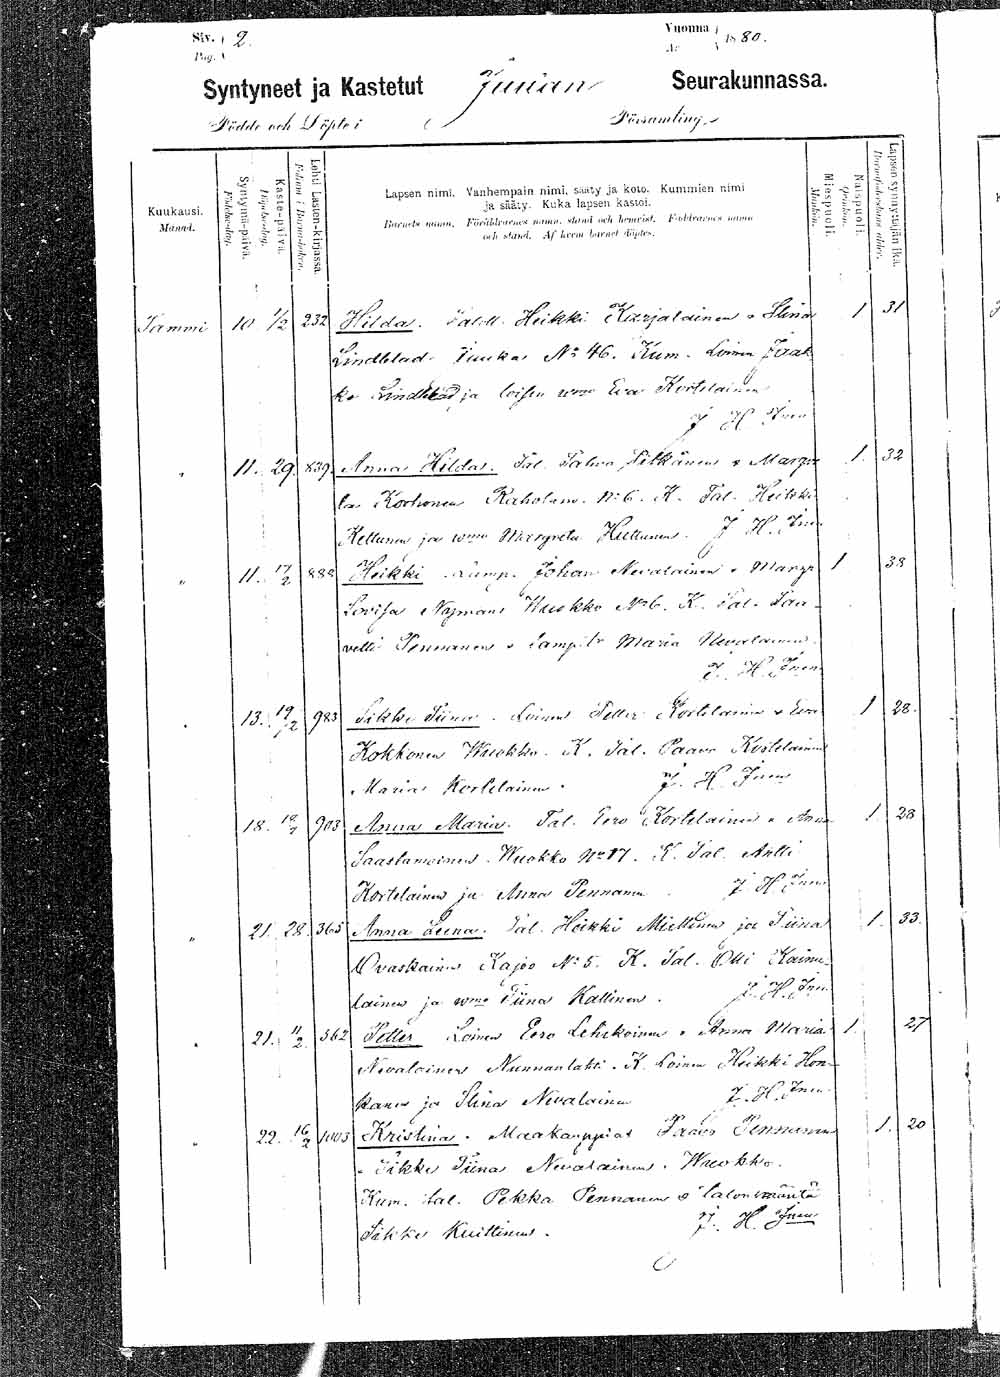 Siv. 2. Vuonna 1880.
Pag. År
Syntyneet ja Kastetut Juuan Seurakunnassa.
Födde och Döpte i Församling
Kuukausi. Månad.
Syntymä-päivä. Födelsedag.
Kaste-päivä. Döpelsedag.
Lehti Lasten-kirjassa. Folium i Barnaboken.
Lapsen nimi. Vanhempain nimi, sääty ja koto. Kummien nimi
ja sääty. Kuka lapsen kastoi.
Barnets namn. Föräldrarnes namn, stånd och hemvist. Faddrarnes namn
och stånd. Af hvem barnet döptes.
Miespuoli. Mankön.
Naispuoli. Qvinkön.
Lapsen synnyttäjän ikä. Barnaföderskans ålder.
Tammi 10 1/2 232 Hilda. Talll. Heikki Karjalainen o Stina 1 31
Lindblad Juuka No 46. Kum. Loinen Jaak
ko Lindblad ja loisen wmo Eva Kortelainen
J H Inen
" 11. 29. 839 Anna Hilda. Tal. Pitkänen o Margre 1. 32
ta Korhonen No 6. K. Tal. Heikki
Kettunen ja wmo Margreta Huttunen. J. H. Inen
" 11. 17/2 888 Heikki Lamp. Johan Nevalainen o Margr 1 38
Lovisa Najman Wuokko No 6. K. Tal. Taa-
vetti Pennanen o Maria Nevalainen
J. H. Inen
" 13. 19/2 983 Sikke Tiina. Loinen Petter Kortelainen o Eva 1 28.
Kokkonen Wuokko. K. Tal. Paavo Kortelainen
Maria Kortelainen. J. H. Inen
" 18. 903 Anna Maria. Tal. Eero Kortelainen o Anna 1 28
Saastamoinen. Wuokko No 17. K. Tal. Antti
Kortelainen ja Anna Pennanen J. H. Inen
" 21. 28. 365 Anna Leena. Tal. Heikki Miettinen ja Tiina 1. 33.
Ovaskainen Kajoo No 5. K. Tal. Olli Kainu-
lainen ja wmo Tiina Kallinen. J. H. Inen
" 21. 11/2 562 Petter Loinen Eero Lehikoinen o Anna Maria 1. 27
Nevalainen Nunnanlahti. K. Loinen Heikki Hon-
kanen ja Stina Nevalainen J. H. Inen
" 22. 16/2 1003 Kristina. Maakauppias Paavo Pennanen 1. 20
o Sikke Tiina Nevalainen. Wuokko.
Kum. tal. Pekka Pennanen o talonemäntä
Sikke Kuittinen. J. H. Inen